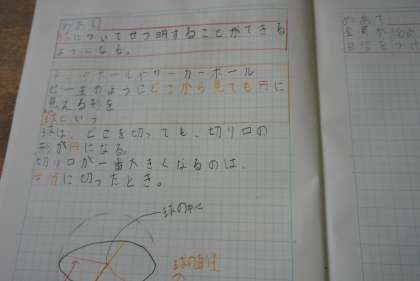 めあて
球についてせつ明することができる
ようになる。
ドッジボールやサッカーボール
ビー玉のようにどこから見ても円に
見える形を
球という
球は、どこを切っても、切り口の
形が円になる
切り口が一番大きくなるのは、
半分に切ったとき。
球の中心
球の直径
めあて
全員が